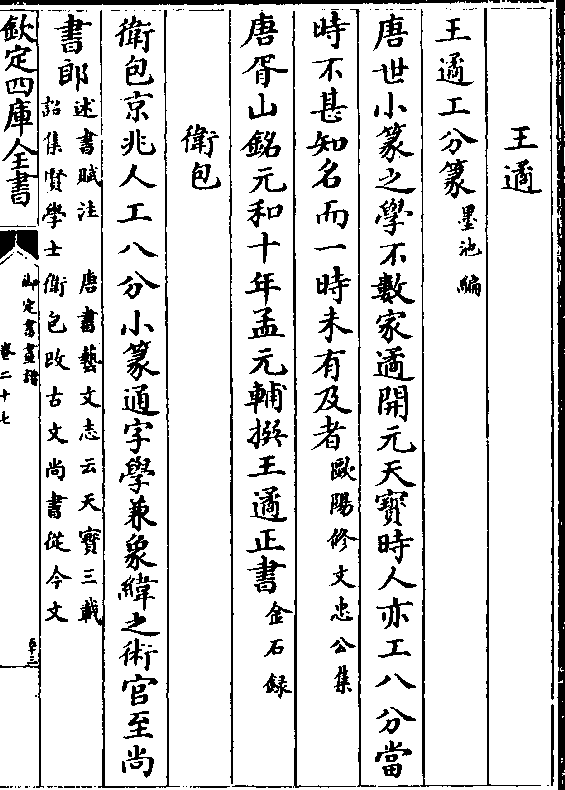 王遹
王遹工分篆墨池編
唐世小篆之學不數家遹開元天寶時人亦工八分當
時不甚知名而一時未有及者歐陽修文忠公集
唐胥山銘元和十年孟元輔撰王遹正書金石録
衛包
衛包京兆人工八分小篆通字學兼象緯之術官至尚
書郎述書賦注 唐書藝文志云天寶三載
詔集賢學士衛包改古文尚書從今文
欽定四庫全書
御定書畫譜
卷二十七